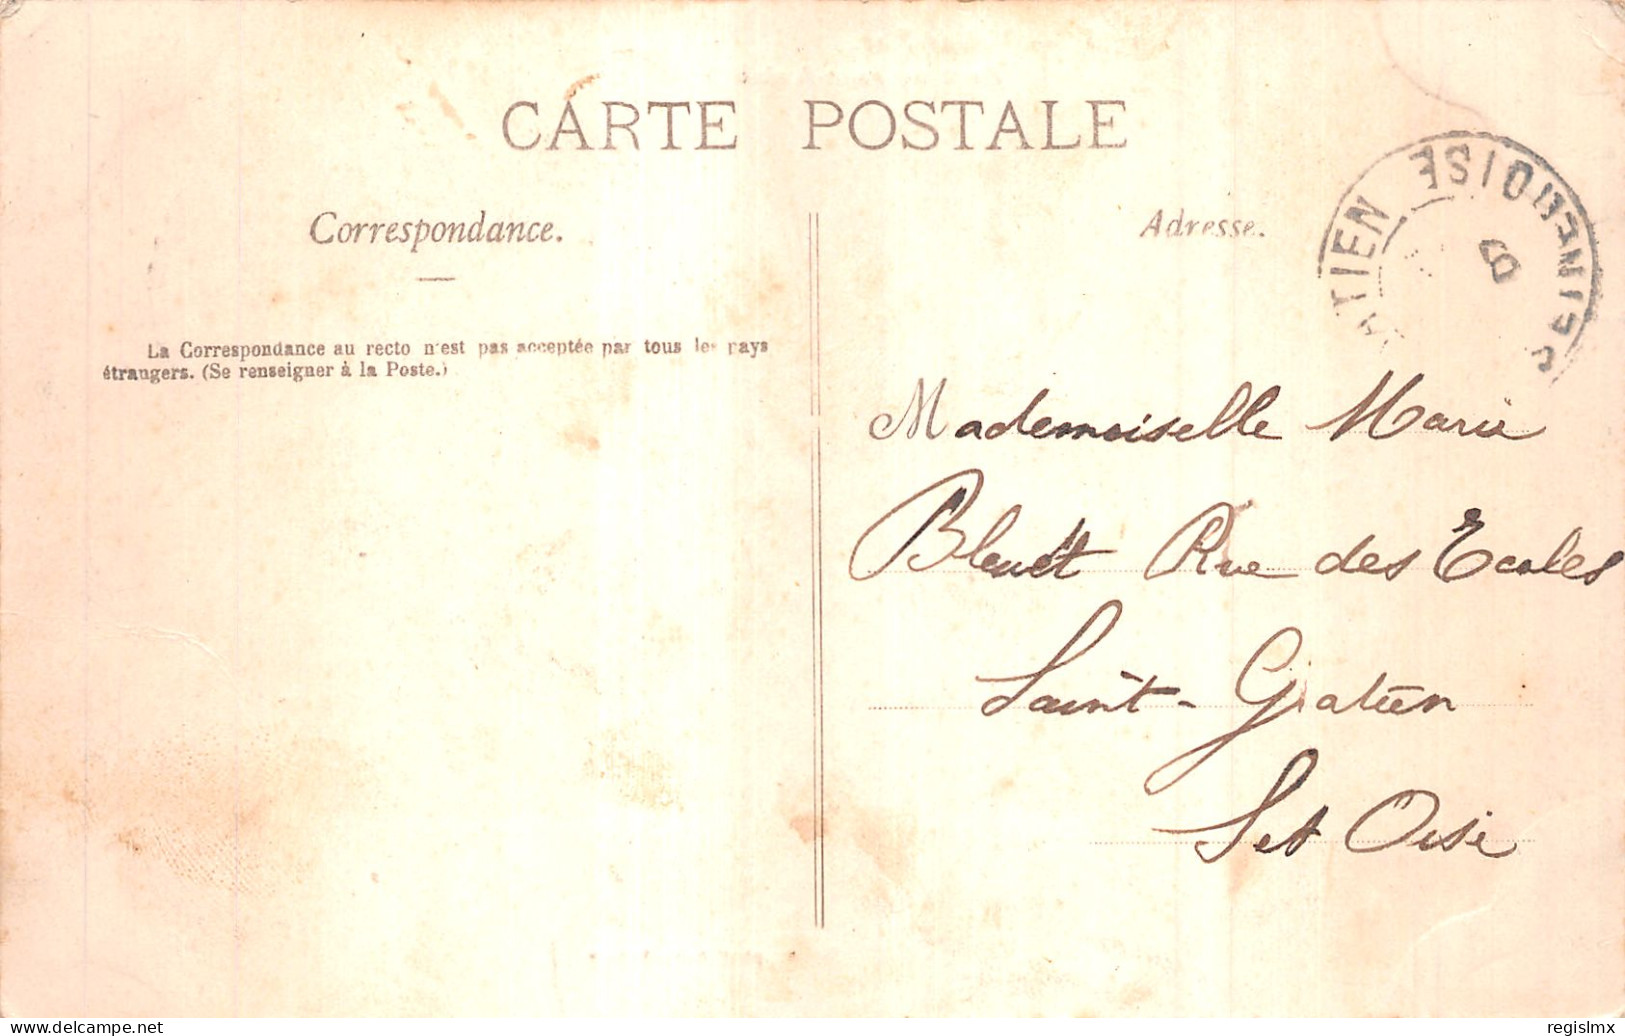 CARTE POSTALE
Correspondance.
Adresse.
ATIEN
SEINE ET OISE
La Correspondance au recto n'est pas acceptée par tous les pays
étrangers. (Se renseigner à la Poste.)
Mademoiselle Marie
Bleuet Rue des Ecoles
Saint-Gratien
S et Oise
www.delcampe.net
regislmx